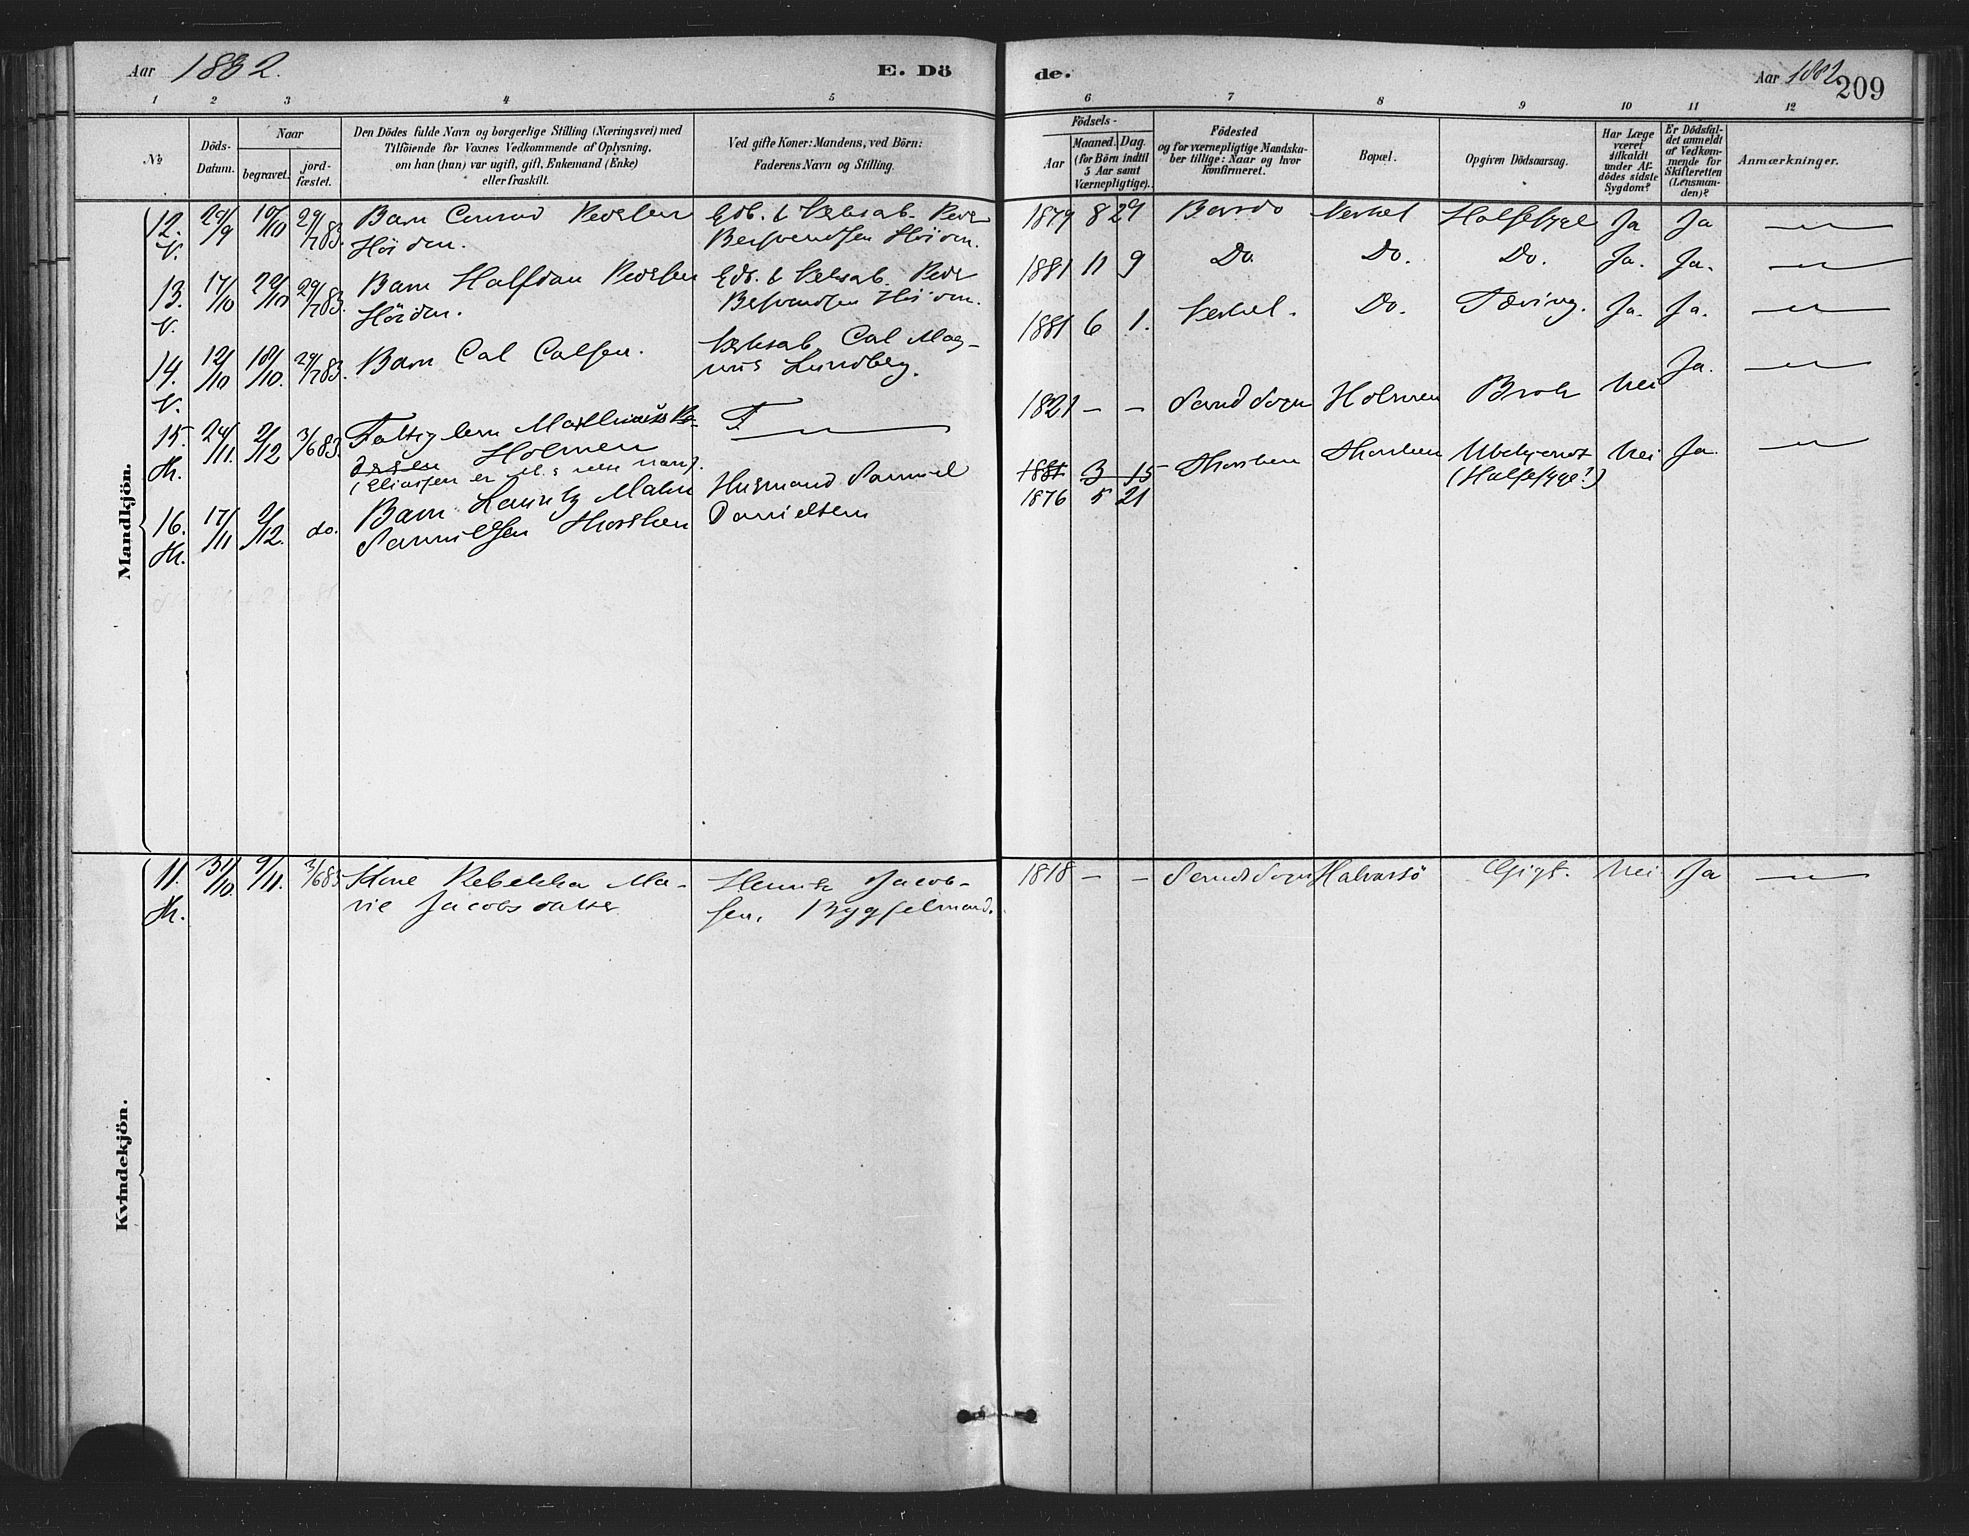 Aar 1882.
E. Dö
1 2 3 4 5
№
Döds-
Datum.
Naar
begravet.
jord-
fæstet.
Den Dödes fulde Navn og borgerlige Stilling (Næringsvei) med
Tilföiende for Voxnes Vedkommende af Oplysning,
om han (hun) var ugift, gift, Enkemand (Enke)
eller fraskilt.
Ved gifte Koner: Mandens, ved Börn:
Faderens Navn og Stilling.
Mandkjön.
12. 29/9 10/10 29/7 83. Barn Conrad Pedersen
V. Höiden.
13. 17/10 22/10 29/7 83. Barn Halfdan Pedersen
V. Höiden.
Bersvendsen Höiden.
14. 12/10 18/10. 29/7 83. Barn Carl Carlsen. Carl Mag-
V. nus Lundberg.
15. 24/11. 2/12 3/6 83. Fattiglem
H. Holmen
16. 17/11 2/12. do. Barn Lauritz Husmand Samuel
H. Samuelsen Danielsen
Kvindekjön.
11. 31/10. 9/11. 3/6 83 Kone Rebekka Ma- Henrik Jacob-
H. rie Jacobsdatter sen.
de.
Aar 1882
209
6 7 8 9 10 11 12
Födsels-
Aar
Maaned. Dag.
(for Börn indtil
5 Aar samt
Værnepligtige).
Födested
og for værnepligtige Mandska-
ber tillige: Naar og hvor
konfirmeret.
Bopæl.
Opgiven Dödsaarsag.
Har Læge
været
tilkaldt
under Af-
dödes sidste
Sygdom?
Er Dödsfal-
det anmeldt
af Vedkom-
mende for
Skifteretten
(Lensman-
den)?
Anmærkninger.
1879 8 29 Halssyge Ja Ja —
1881 11 9 Do Do. Do. Ja. Ja. —
1881 6 1. Do. Tæring. Ja. Ja. —
1821 — — Holmen Brok Nei Ja. —
1881 3 15 Ubekjendt Nei Ja. —
1876 5 21 (Halssyge?)
1818 — — Halvarsö Gigt. Nei Ja —